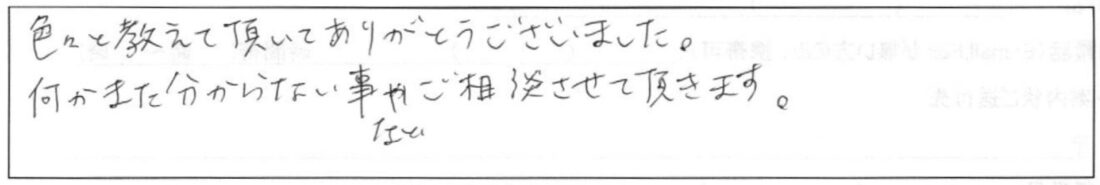 色々と教えて頂いてありがとうございました。
何かまた分からない事やご相談させて頂きます。
など